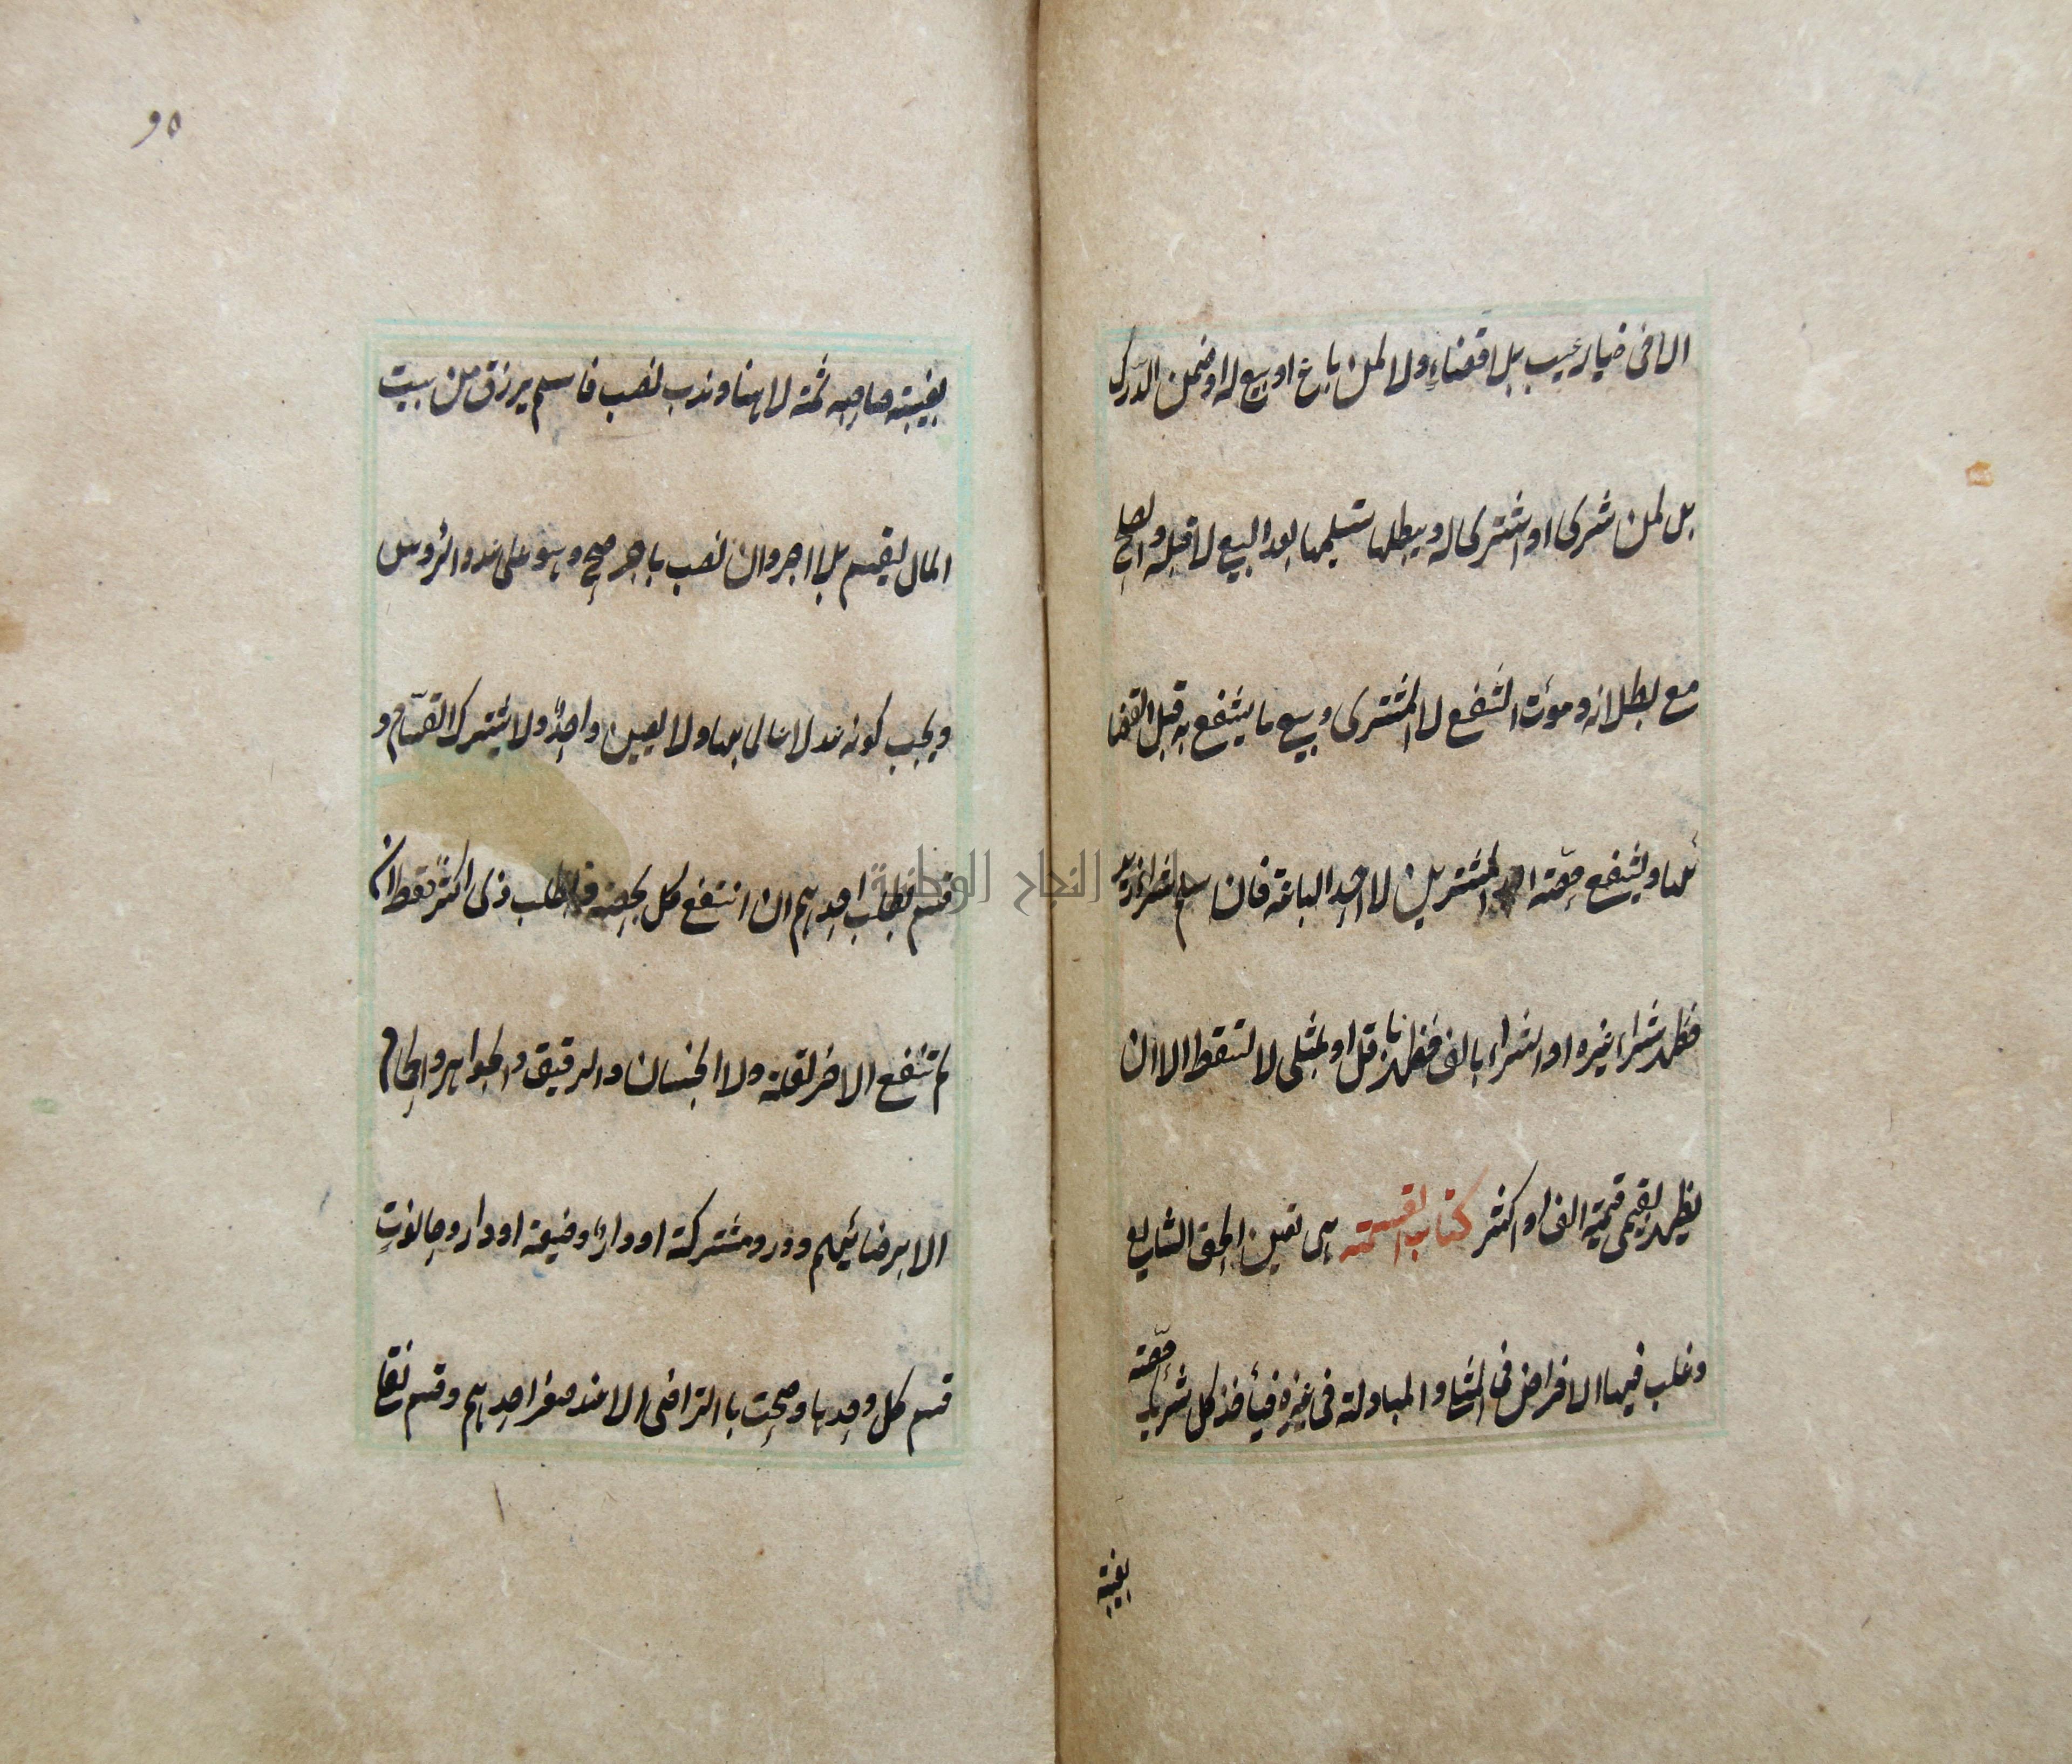 الا فى خيار عيب بلا قضاءٍ ولا لمن باع او بيع له او ضمن الدرك
بل لمن شرى او اشترى له ويبطلها تسليمها بعد البيع لا قبله والصلح
مع بطلانه وموت الشفيع لا المشترى وبيع ما يشفع به قبل القضا
لها ويشفع حصّة احد المشترين لا احد الباعة فان سلم شراء زيد
فظهر شراء غيره او الشراء بالف فظهر باقل او بمثلى لا تسقط الا ان
يظهر بقيمى قيمته الف او اكثر كتاب القسمة هى تعين الحق الشايع
وغلب فيها الافراض فى المثلى والمبادلة فى غيره فيأخذ كل شريك حصّته
بغيبة
٩٥
بغيبة صاحبه ثمة لا هنا وندب نصب قاسم يرزق من بيت
المال ليقسم بلا اجر وان نصب باجر صح وهو على عدد الرؤس
ويجب كونه عدلا عالى بها ولا يعين واحدٌ ولا يشترك القسّام و
قسم بطلب احدهم ان انتفع كل بحصته وبطلب ذى اكثر فقط ان
لم تنفع الاخر لقلة ولا الجنسان والرقيق والجواهر والحمام
الا برضائيهم ودور مشتركة او دارٌ وضيعة او دار وحانوت
قسم كل وحدها وصحت با التراضى الا عند صغر احدهم وقسم نقلى
النجاح الوطنية